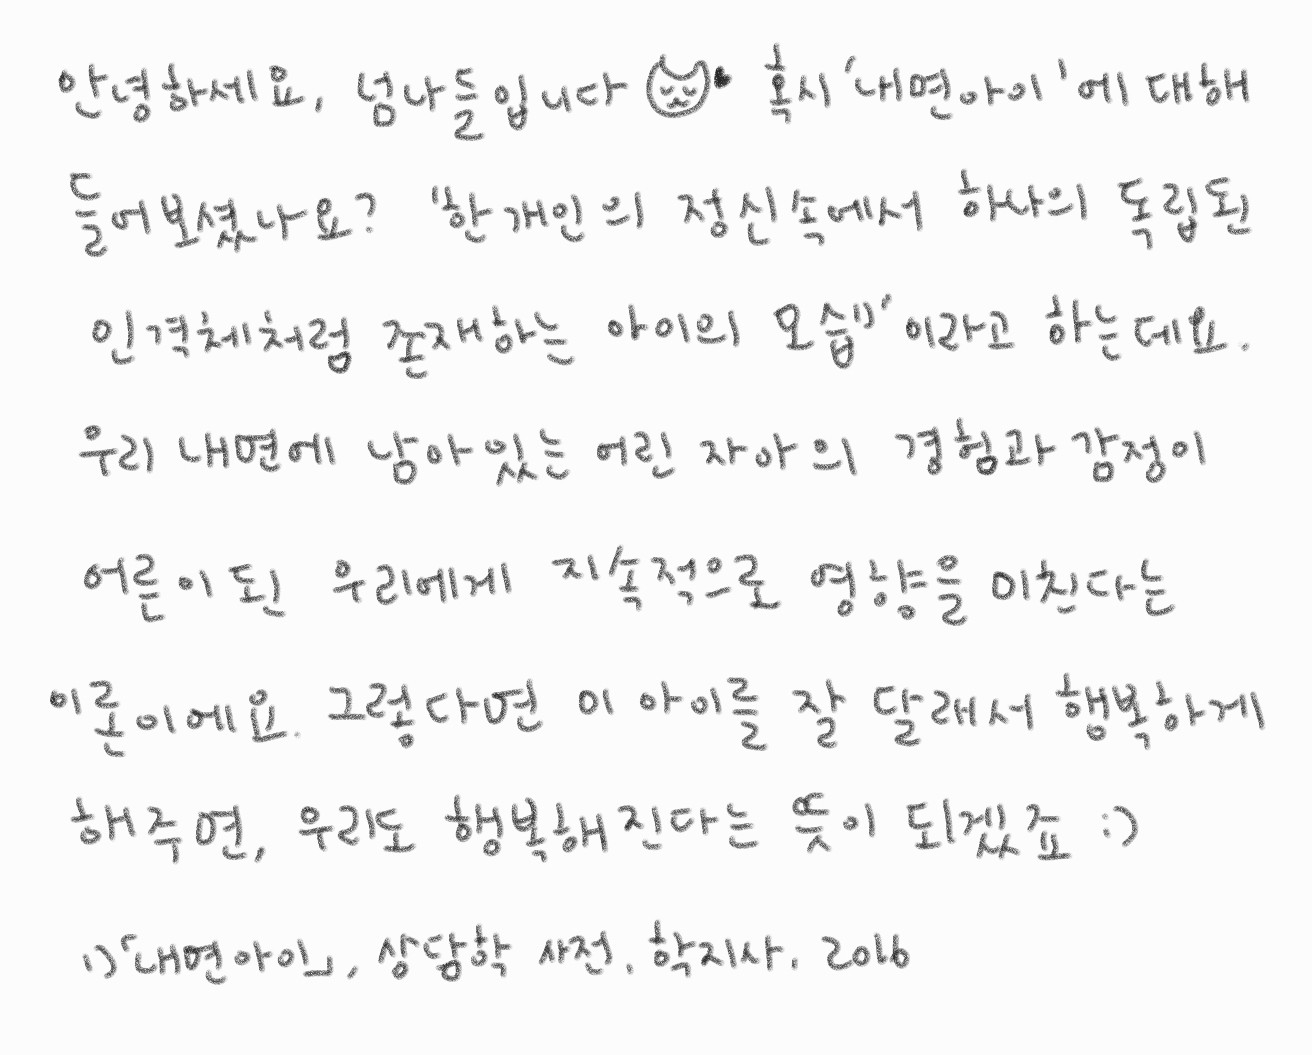 안녕하세요, 넘나들입니다 혹시 '내면아이'에 대해
들어보셨나요? "한 개인의 정신속에서 하나의 독립된
인격체처럼 존재하는 아이의 모습¹⁾"이라고 하는데요.
우리 내면에 남아있는 어린 자아의 경험과 감정이
어른이 된 우리에게 지속적으로 영향을 미친다는
이론이에요. 그렇다면 이 아이를 잘 달래서 행복하게
해주면, 우리도 행복해진다는 뜻이 되겠죠 :)
1)「내면아이」, 상담학 사전. 학지사. 2016